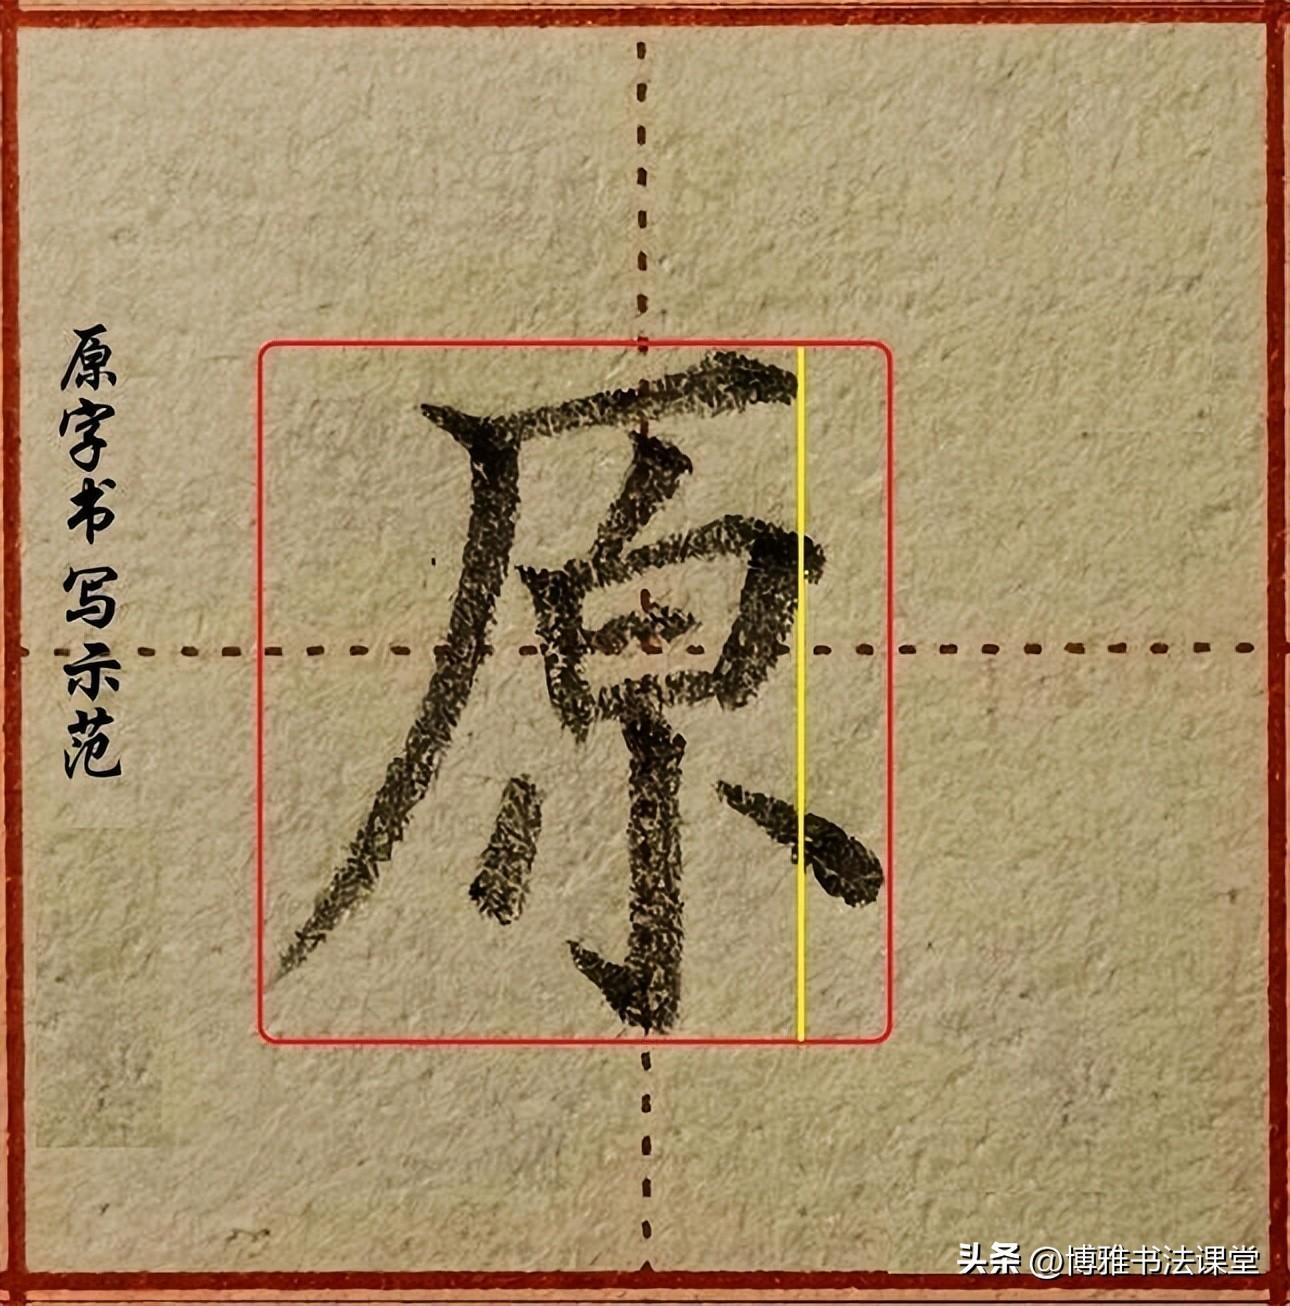 原字书写示范
原
头条 @博雅书法课堂